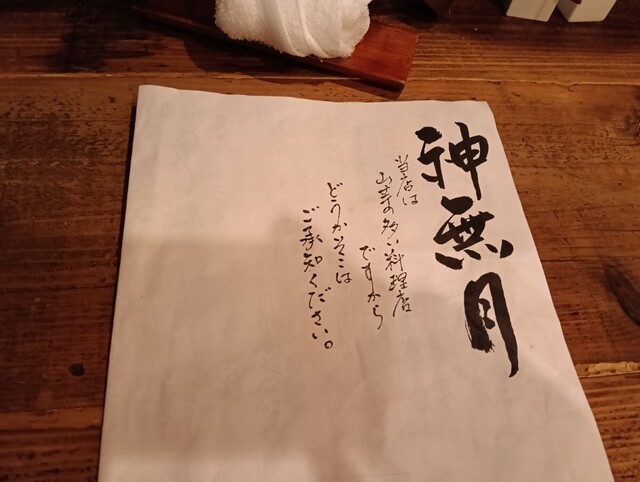 神無月
当店は
山芋の多い料理店
ですから
どうかそこは
ご承知ください。